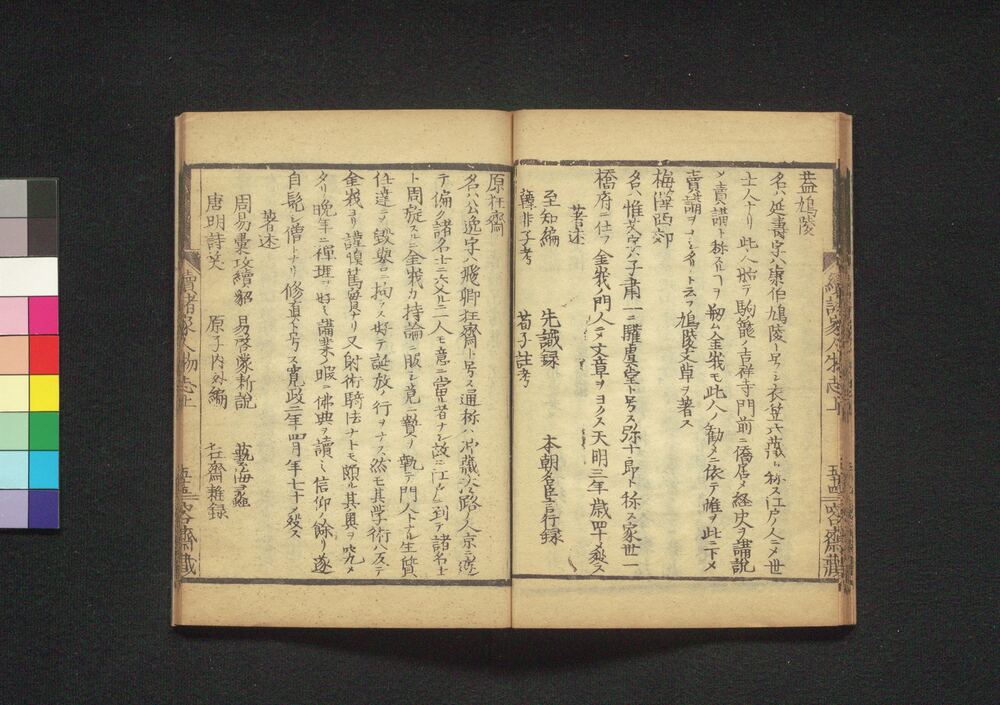 益鳩陵
名ハ延壽字ハ康伯鳩陵ト号シ衣笠六藏ト称ス江戸ノ人ニメ世
士人ナリ此人始テ駒籠ノ吉祥寺門前ニ僑居メ経史ヲ講説
メ賣講ト称スルヿヲ剏ム金峩モ此人ノ勧メニ依テ帷ヲ此ニ下メ
賣講ヲ
ト云フ鳩陵文草ヲ著ス
梅澤西郊
名ハ惟
字ハ子肅一ニ騶虞堂ト号ス弥十郎ト称ス家世一
橋府ニ仕フ金峩ノ門人ニメ文章ヲヨクス天明三年歳四十メ歿ス
著述
至知編 先識録 本朝名臣言行録
韓非子考 荀子註考
原狂齋
名ハ公逸字ハ飛卿狂齋ト号ス通称ハ
淡路ノ人京ニ
テ偏ク諸名士ニ交ルニ一人モ意ニ當ル者ナシ故ニ江戸ニ到テ諸名士
ト周旋スルニ金峩カ持論ニ服シ竟ニ贄ヲ執テ門人トナル生質
任達ニメ毀譽ニ拘ラス好テ誕放ノ行ヲナス然モ其学術ハ反テ
金峩ヨリ謹慎篤實ナリ又射術騎法ナトモ頗ル其奥ヲ究メ
タリ晩年ニ禪理ヲ好ミ講業ノ暇ニ佛典ヲ讀ミ信仰ノ餘リ遂
自髠シ僧トナリ修真ト号ス寛政二年四月年七十ノ歿ス
著述
周易彙攷續貂 易啓蒙斬説 藝海蠡
唐明詩笑 原子内外編 狂齋雜録
續諸家人物志上
五十三
容齋藏